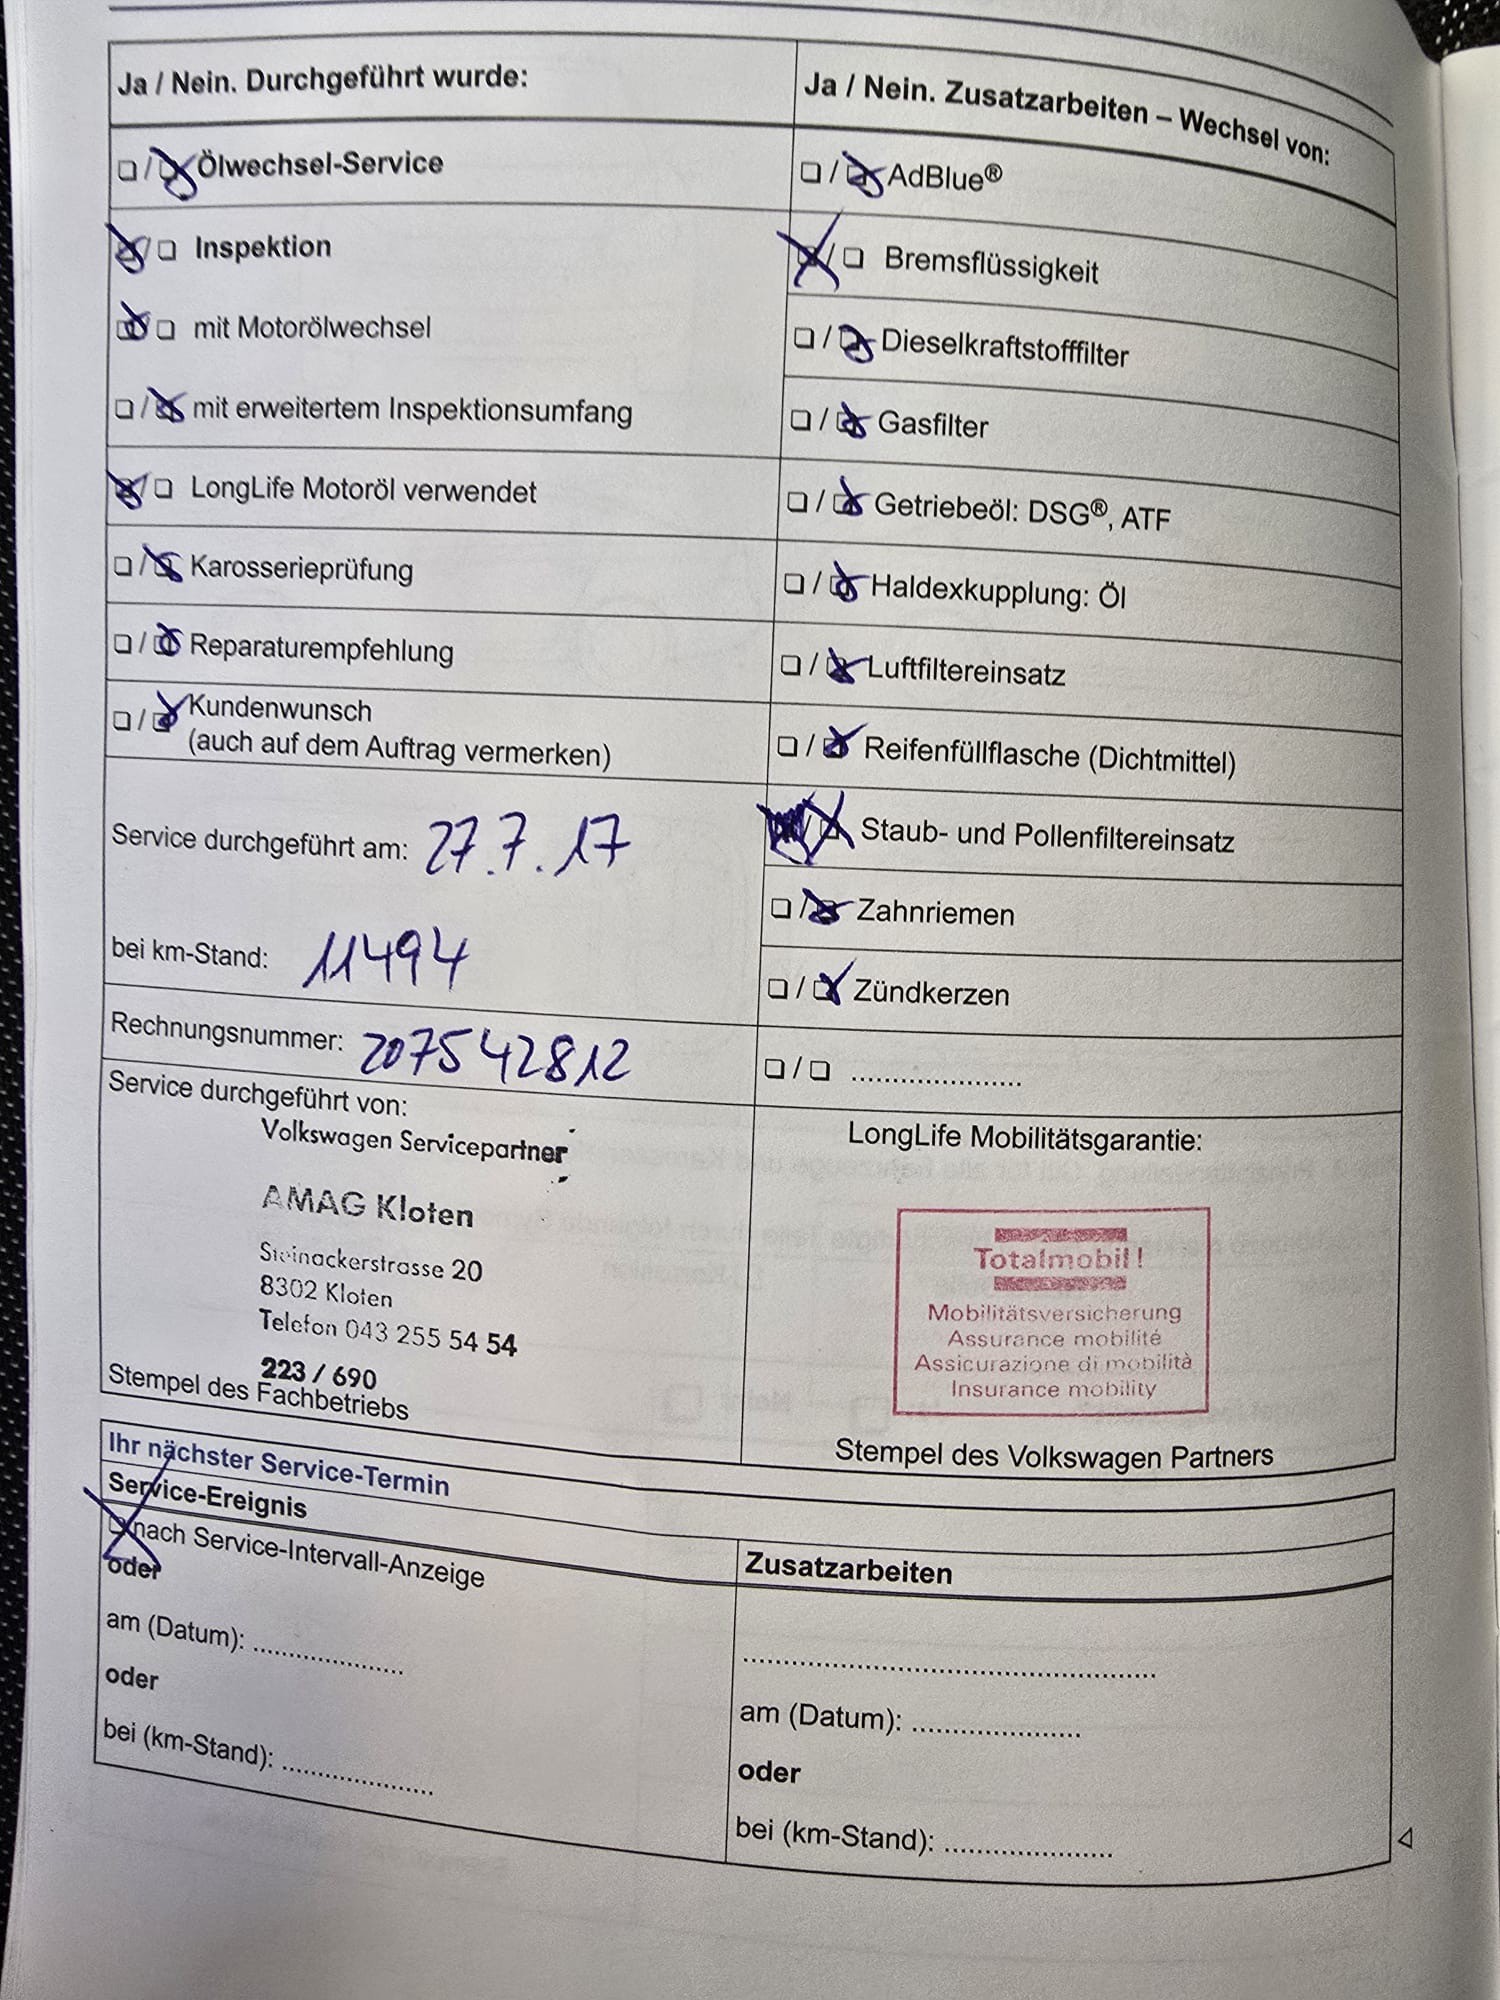 Ja / Nein. Durchgeführt wurde:
☐ / ☒ Ölwechsel-Service
☒ / ☐ Inspektion
☒ / ☐ mit Motorölwechsel
☐ / ☒ mit erweitertem Inspektionsumfang
☒ / ☐ LongLife Motoröl verwendet
☐ / ☒ Karosserieprüfung
☐ / ☒ Reparaturempfehlung
☐ / ☒ Kundenwunsch
(auch auf dem Auftrag vermerken)
Service durchgeführt am: 27.7.17
bei km-Stand: 11494
Rechnungsnummer: 207542812
Service durchgeführt von:
Volkswagen Servicepartner
AMAG Kloten
Steinackerstrasse 20
8302 Kloten
Telefon 043 255 54 54
223 / 690
Stempel des Fachbetriebs
Ja / Nein. Zusatzarbeiten – Wechsel von:
☐ / ☒ AdBlue®
☒ / ☐ Bremsflüssigkeit
☐ / ☒ Dieselkraftstofffilter
☐ / ☒ Gasfilter
☐ / ☒ Getriebeöl: DSG®, ATF
☐ / ☒ Haldexkupplung: Öl
☐ / ☒ Luftfiltereinsatz
☐ / ☒ Reifenfüllflasche (Dichtmittel)
☒ / ☒ Staub- und Pollenfiltereinsatz
☐ / ☒ Zahnriemen
☐ / ☒ Zündkerzen
☐ / ☐ ......................
LongLife Mobilitätsgarantie:
Totalmobil!
Mobilitätsversicherung
Assurance mobilité
Assicurazione di mobilità
Insurance mobility
Stempel des Volkswagen Partners
Ihr nächster Service-Termin
Service-Ereignis
☒ nach Service-Intervall-Anzeige
oder
am (Datum): ....................
oder
bei (km-Stand): ....................
Zusatzarbeiten
......................................................
am (Datum): ......................
oder
bei (km-Stand): ......................